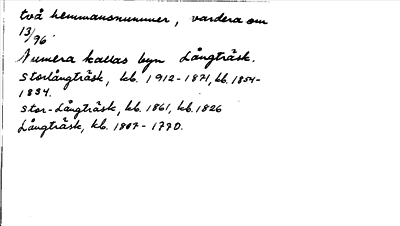 två hemmansnummer, vardera om
13/96.
Numera kallas byn Långträsk.
Storlångträsk, kb. 1912-1871, kb. 1854-
1834.
Stor-Långträsk, kb. 1861, kb. 1826
Långträsk, kb. 1807-1770.